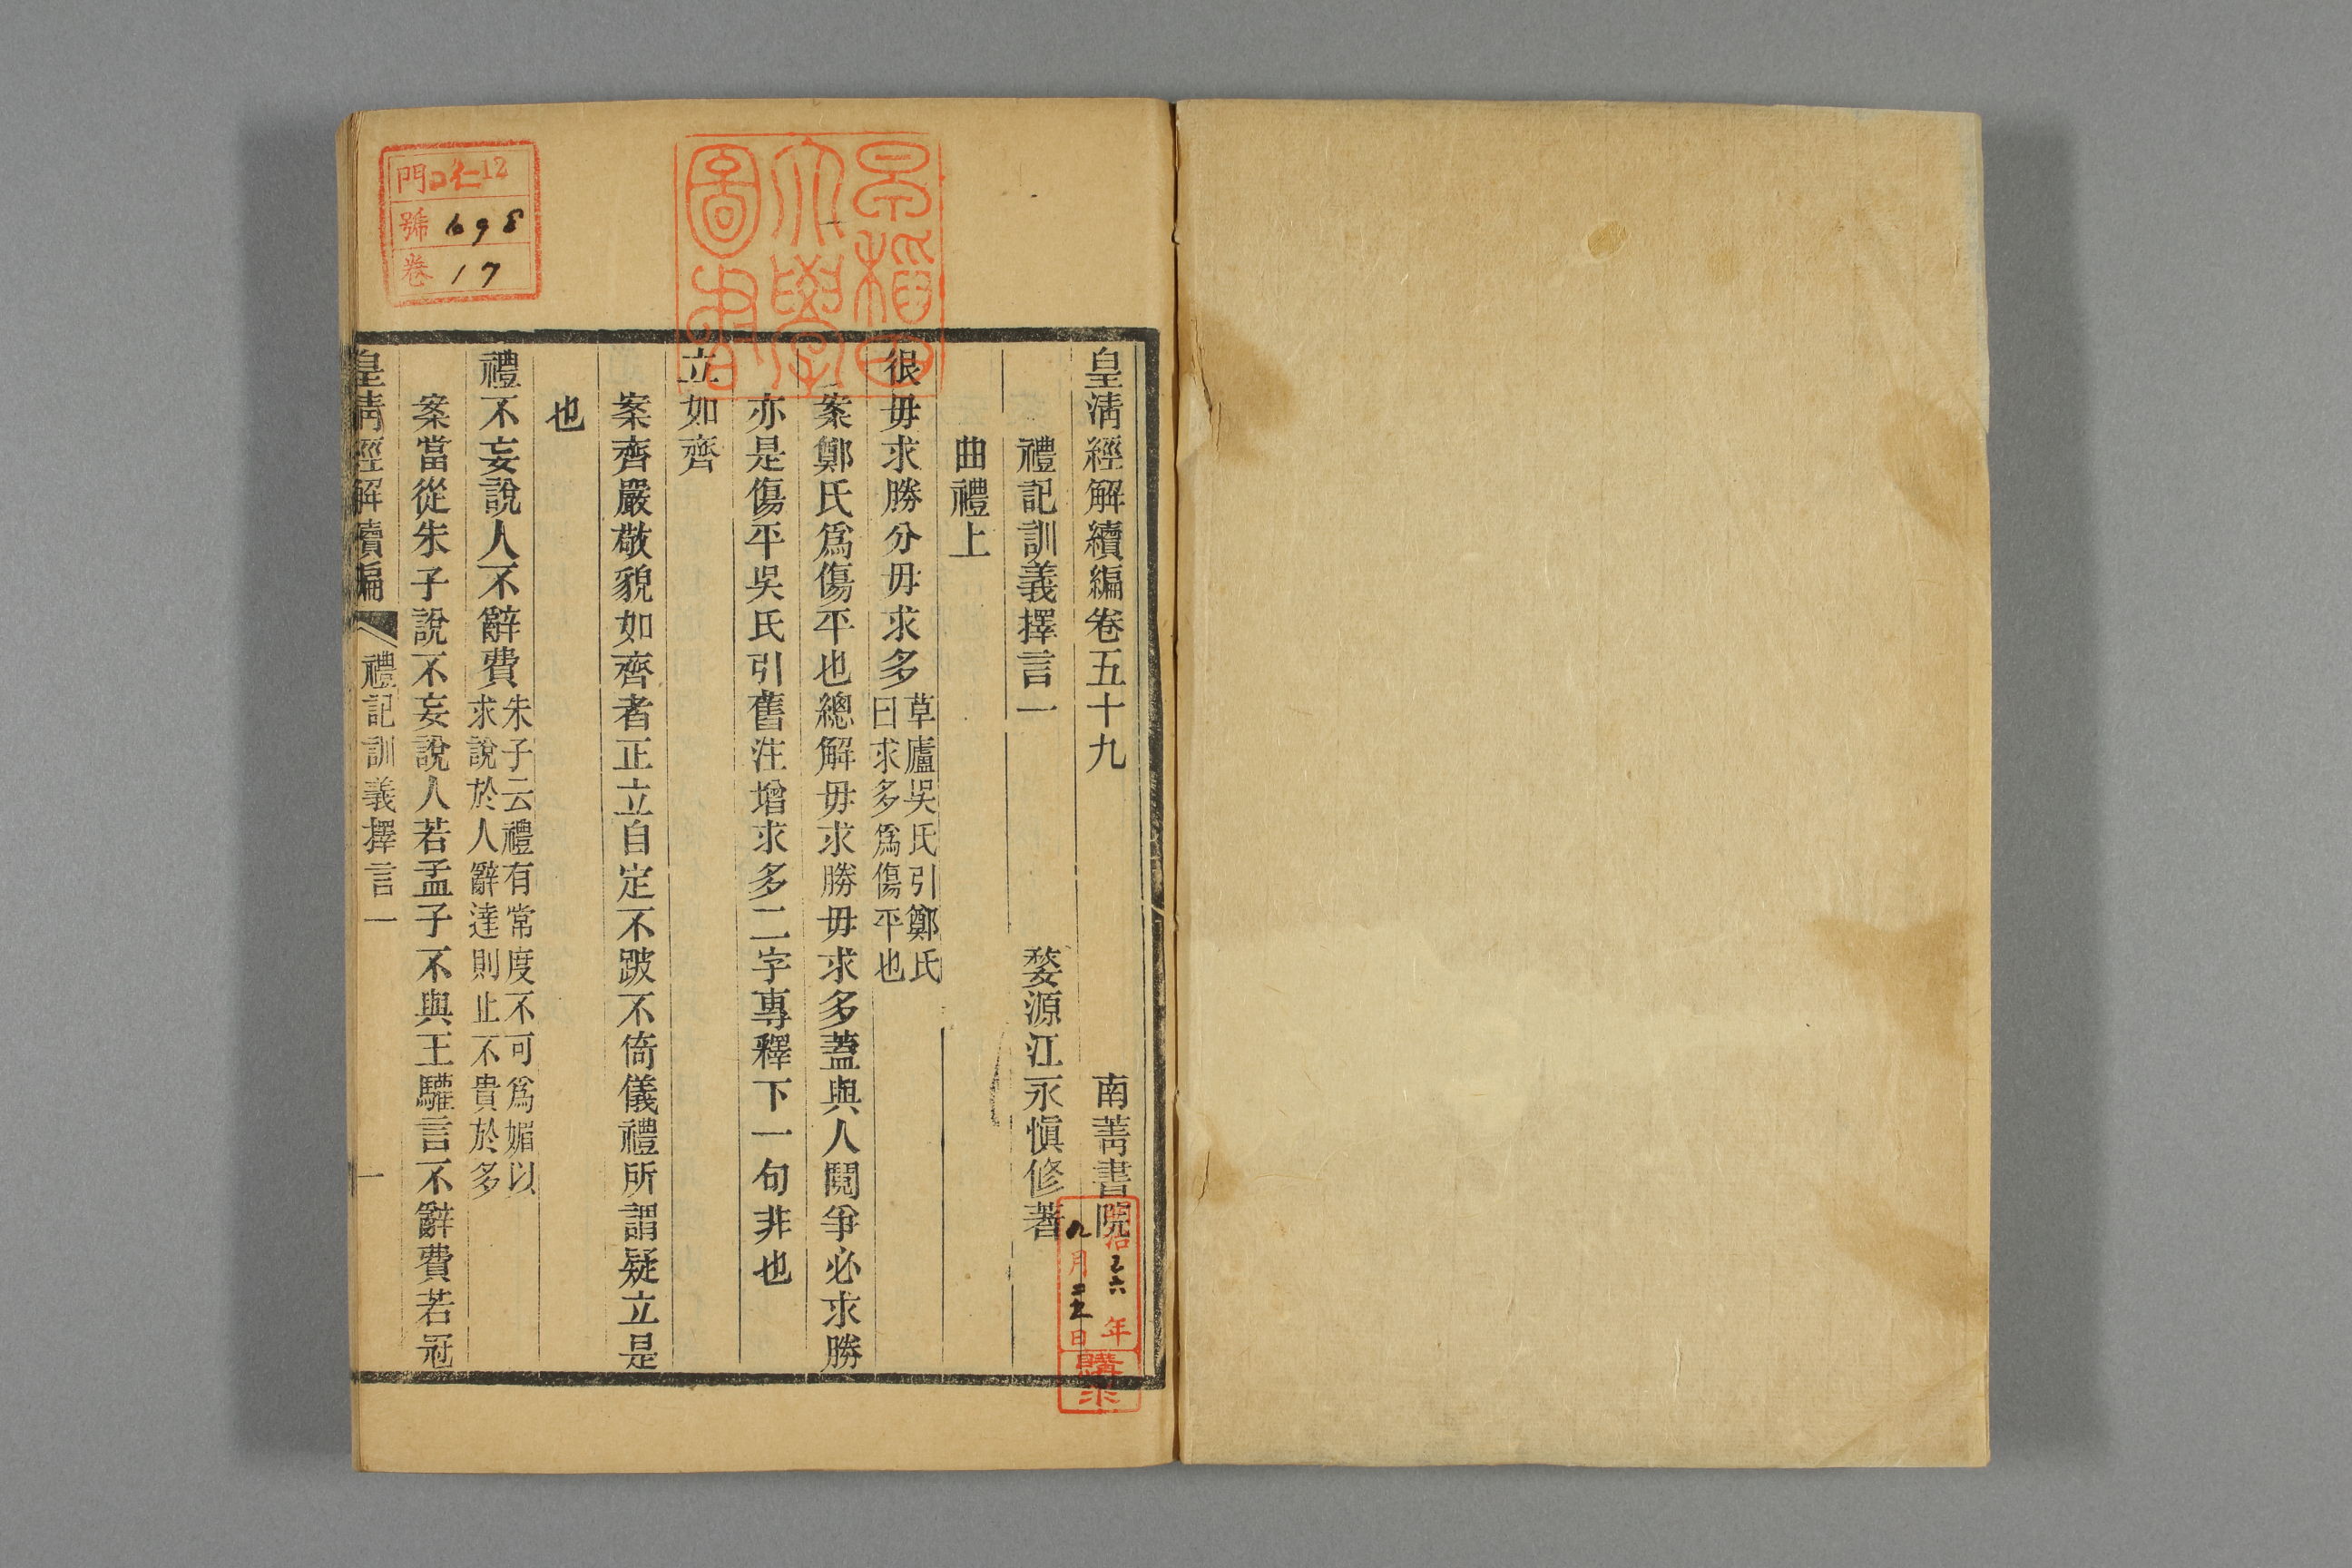 皇清經解續編卷五十九 南菁書院
禮記訓義擇言一 婺源江永愼修著
曲禮上
很毋求勝分毋求多草廬吳氏引鄭氏
曰求多爲傷平也
案鄭氏爲傷平也總解毋求勝毋求多蓋與人鬩爭必求勝
亦是傷平吳氏引舊注增求多二字專釋下一句非也
立如齊
案齊嚴敬貌如齊者正立自定不跛不倚儀禮所謂疑立是
也
禮不妄說人不辭費朱子云禮有常度不可爲媚以
求說於人辭達則止不貴於多
案當從朱子說不妄說人若孟子不與王驩言不辭費若冠
皇清經解續編 禮記訓義擇言一 一
早稻田
大學
圖書
門 ロ仁12
號 698
卷 17
治 年
九月 日
購求